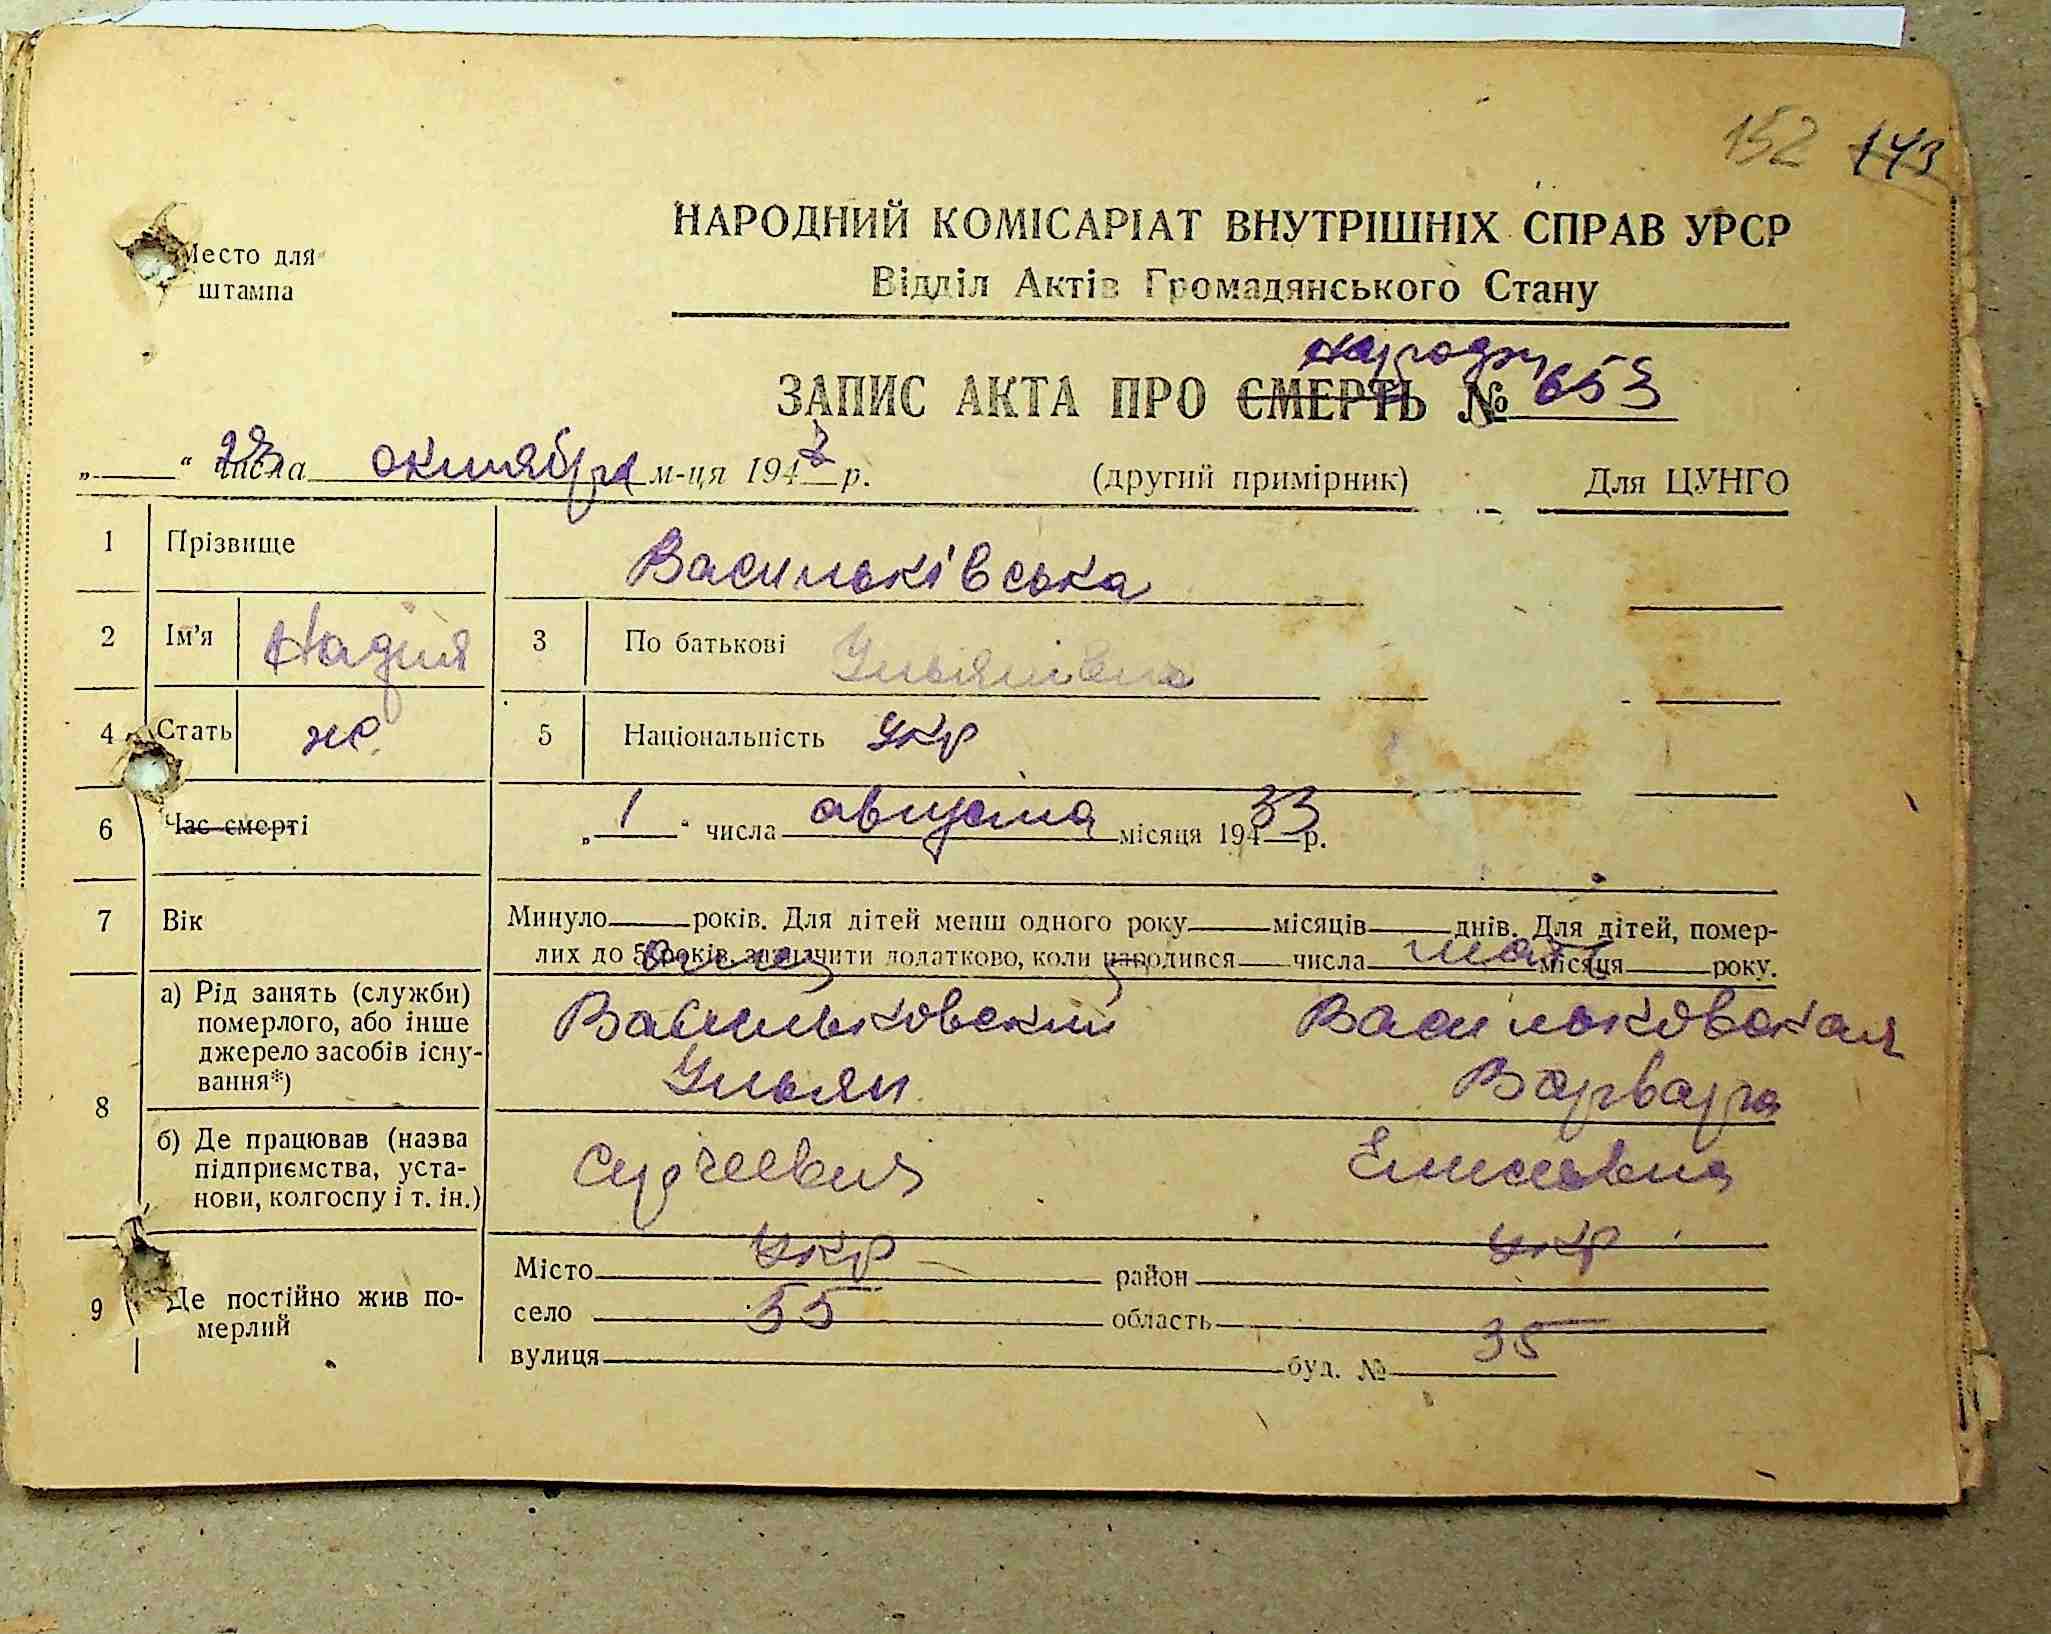 152 143
Место для
штампа
НАРОДНИЙ КОМІСАРІАТ ВНУТРІШНІХ СПРАВ УРСР
Відділ Актів Громадянського Стану
ЗАПИС АКТА ПРО СМЕРТЬ № 653
„ “ числа октября м-ця 194 р. (другий примірник) Для ЦУНГО
1 Прізвище Васильківська
2 Ім'я Надія 3 По батькові Ульянівна
4 Стать ж 5 Національність укр
6 Час смерті „ 1 “ числа августа місяця 194 33 р.
7 Вік Минуло років. Для дітей менш одного року місяців днів. Для дітей, помер-
лих до 5 років, зазначити додатково, коли народився числа місяця року.
Отец мать
8 а) Рід занять (служби)
померлого, або інше
джерело засобів існу-
вання*)
Васильковский Васильковская
Ульян Варвара
б) Де працював (назва
підприємства, уста-
нови, колгоспу і т. ін.)
Сергеевич Елисеевна
укр укр
9 Де постійно жив по-
мерлий
Місто район
село 35 область
вулиця буд. № 35